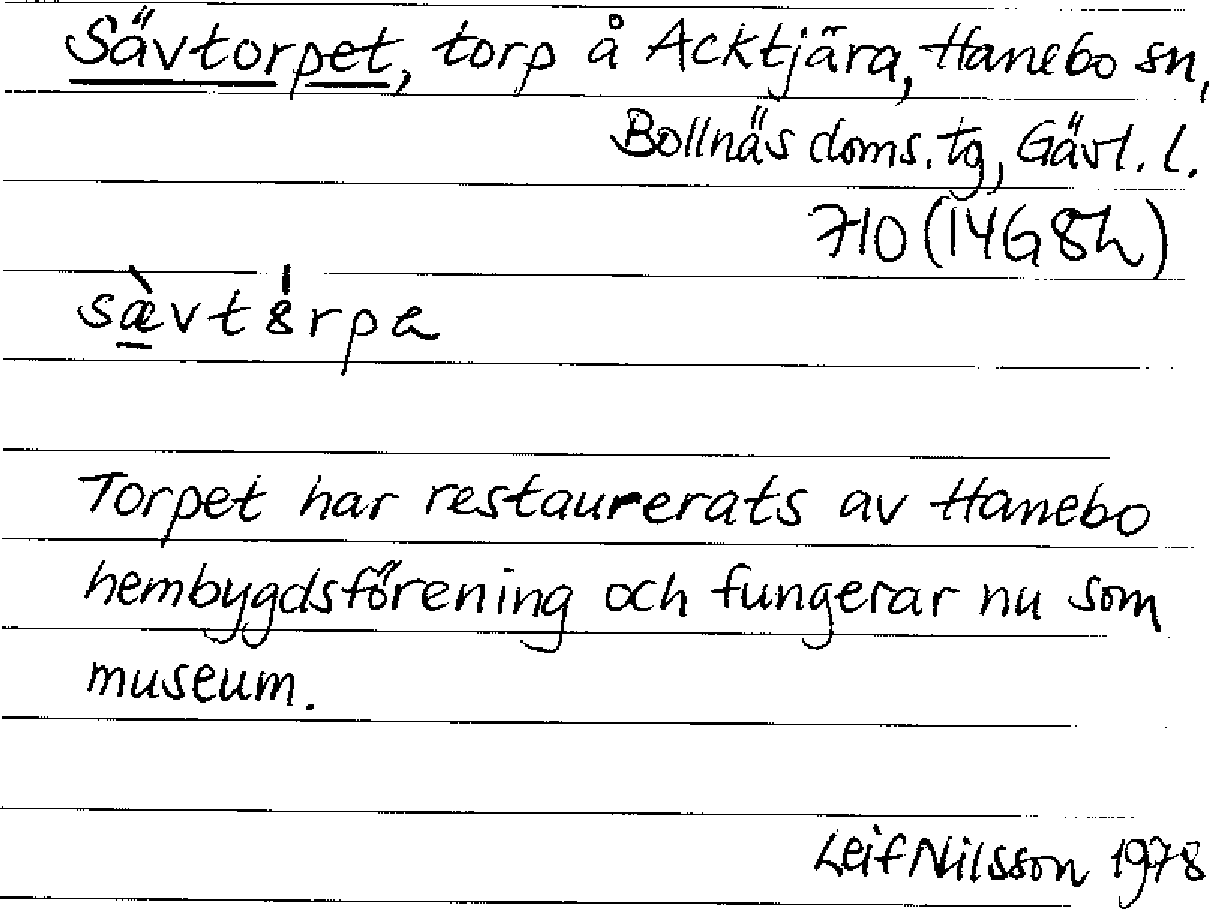 Sävtorpet, torp å Acktjära, Hanebo sn,
Bollnäs doms. tg, Gävl. l.
710 (14G8h)
sæ̀vtȣ̍rpa
Torpet har restaurerats av Hanebo
hembygdsförening och fungerar nu som
museum.
Leif Nilsson 1978